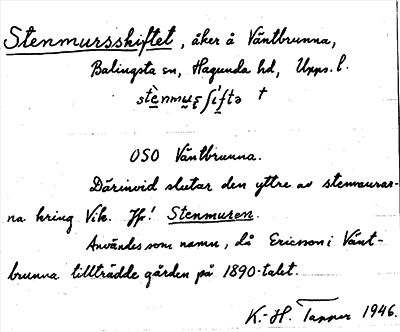 Stenmursskiftet, åker å Väntbrunna,
Balingsta sn, Hagunda hd, Upps. l.
OSO Väntbrunna.
Därinvid slutar den yttre av stenmurar-
na kring Vik. Jfr! Stenmuren.
Användes som namn, då Ericson i Vänt-
brunna tillträdde gården på 1890-talet.
K.-H. Tapper 1946.